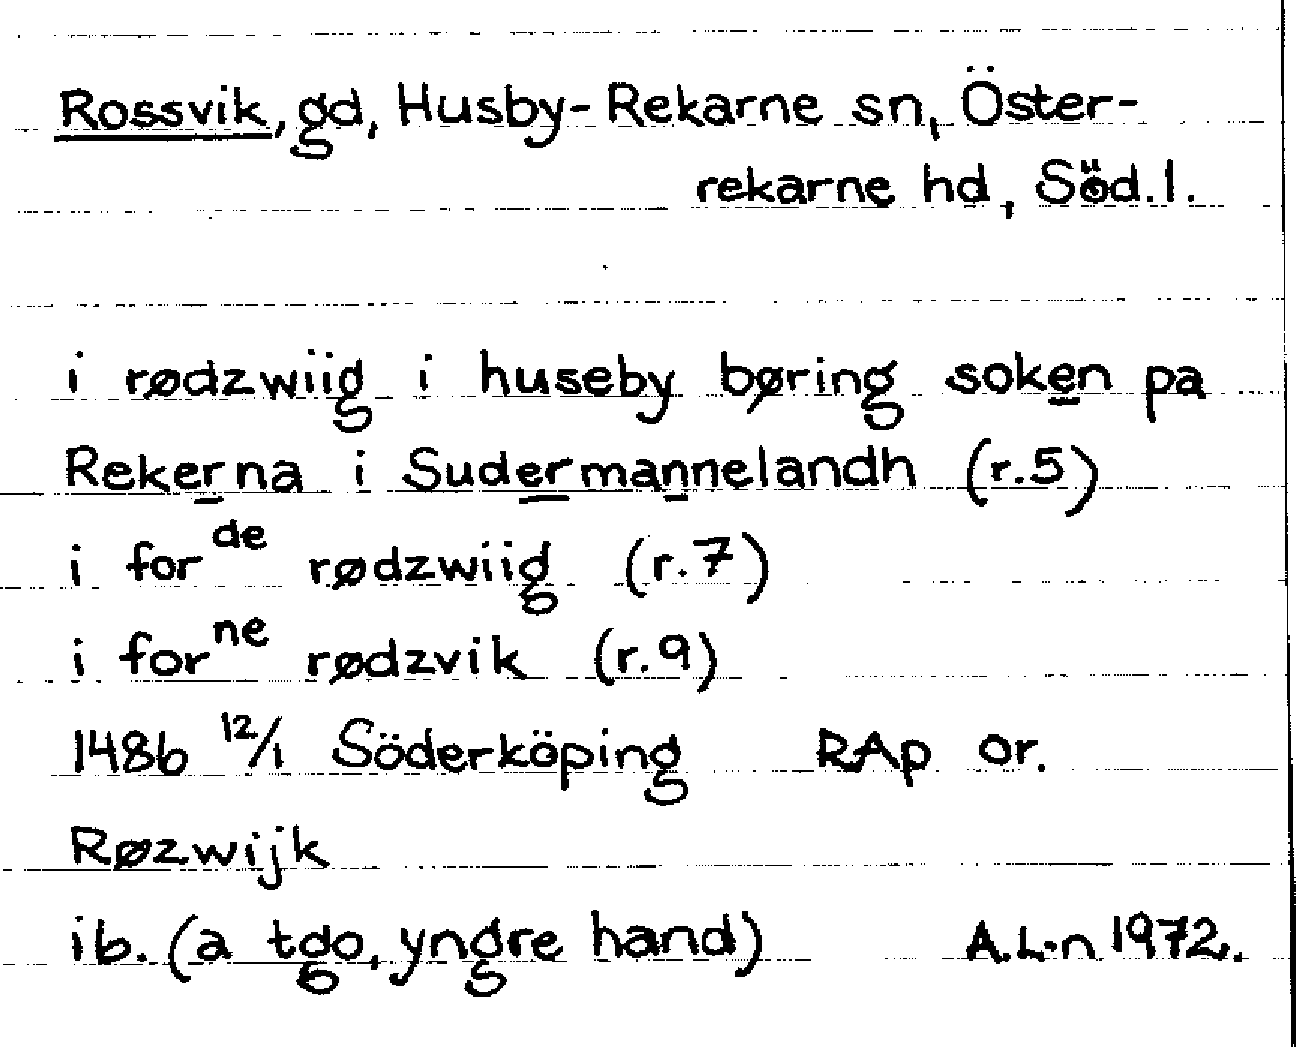 Rossvik, gd, Husby-Rekarne sn, Öster-
rekarne hd, Söd.l.
i rødzwiig i huseby børing soken pa
Rekerna i Sudermannelandh (r.5)
i for de rødzwiig (r.7)
i for ne rødzvik (r.9)
1486 12/1 Söderköping RAp or.
Røzwijk
ib. (a tgo, yngre hand) A.L-n 1972.